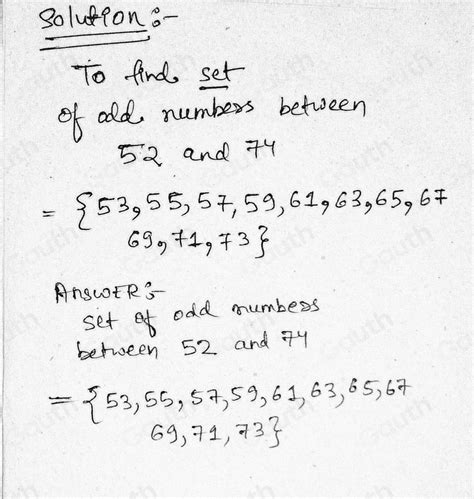 Solution :-
To find set
of odd numbers between
52 and 74
= {53, 55, 57, 59, 61, 63, 65, 67
69, 71, 73}
AnswER :-
set of odd numbers
between 52 and 74
= {53, 55, 57, 59, 61, 63, 65, 67
69, 71, 73}